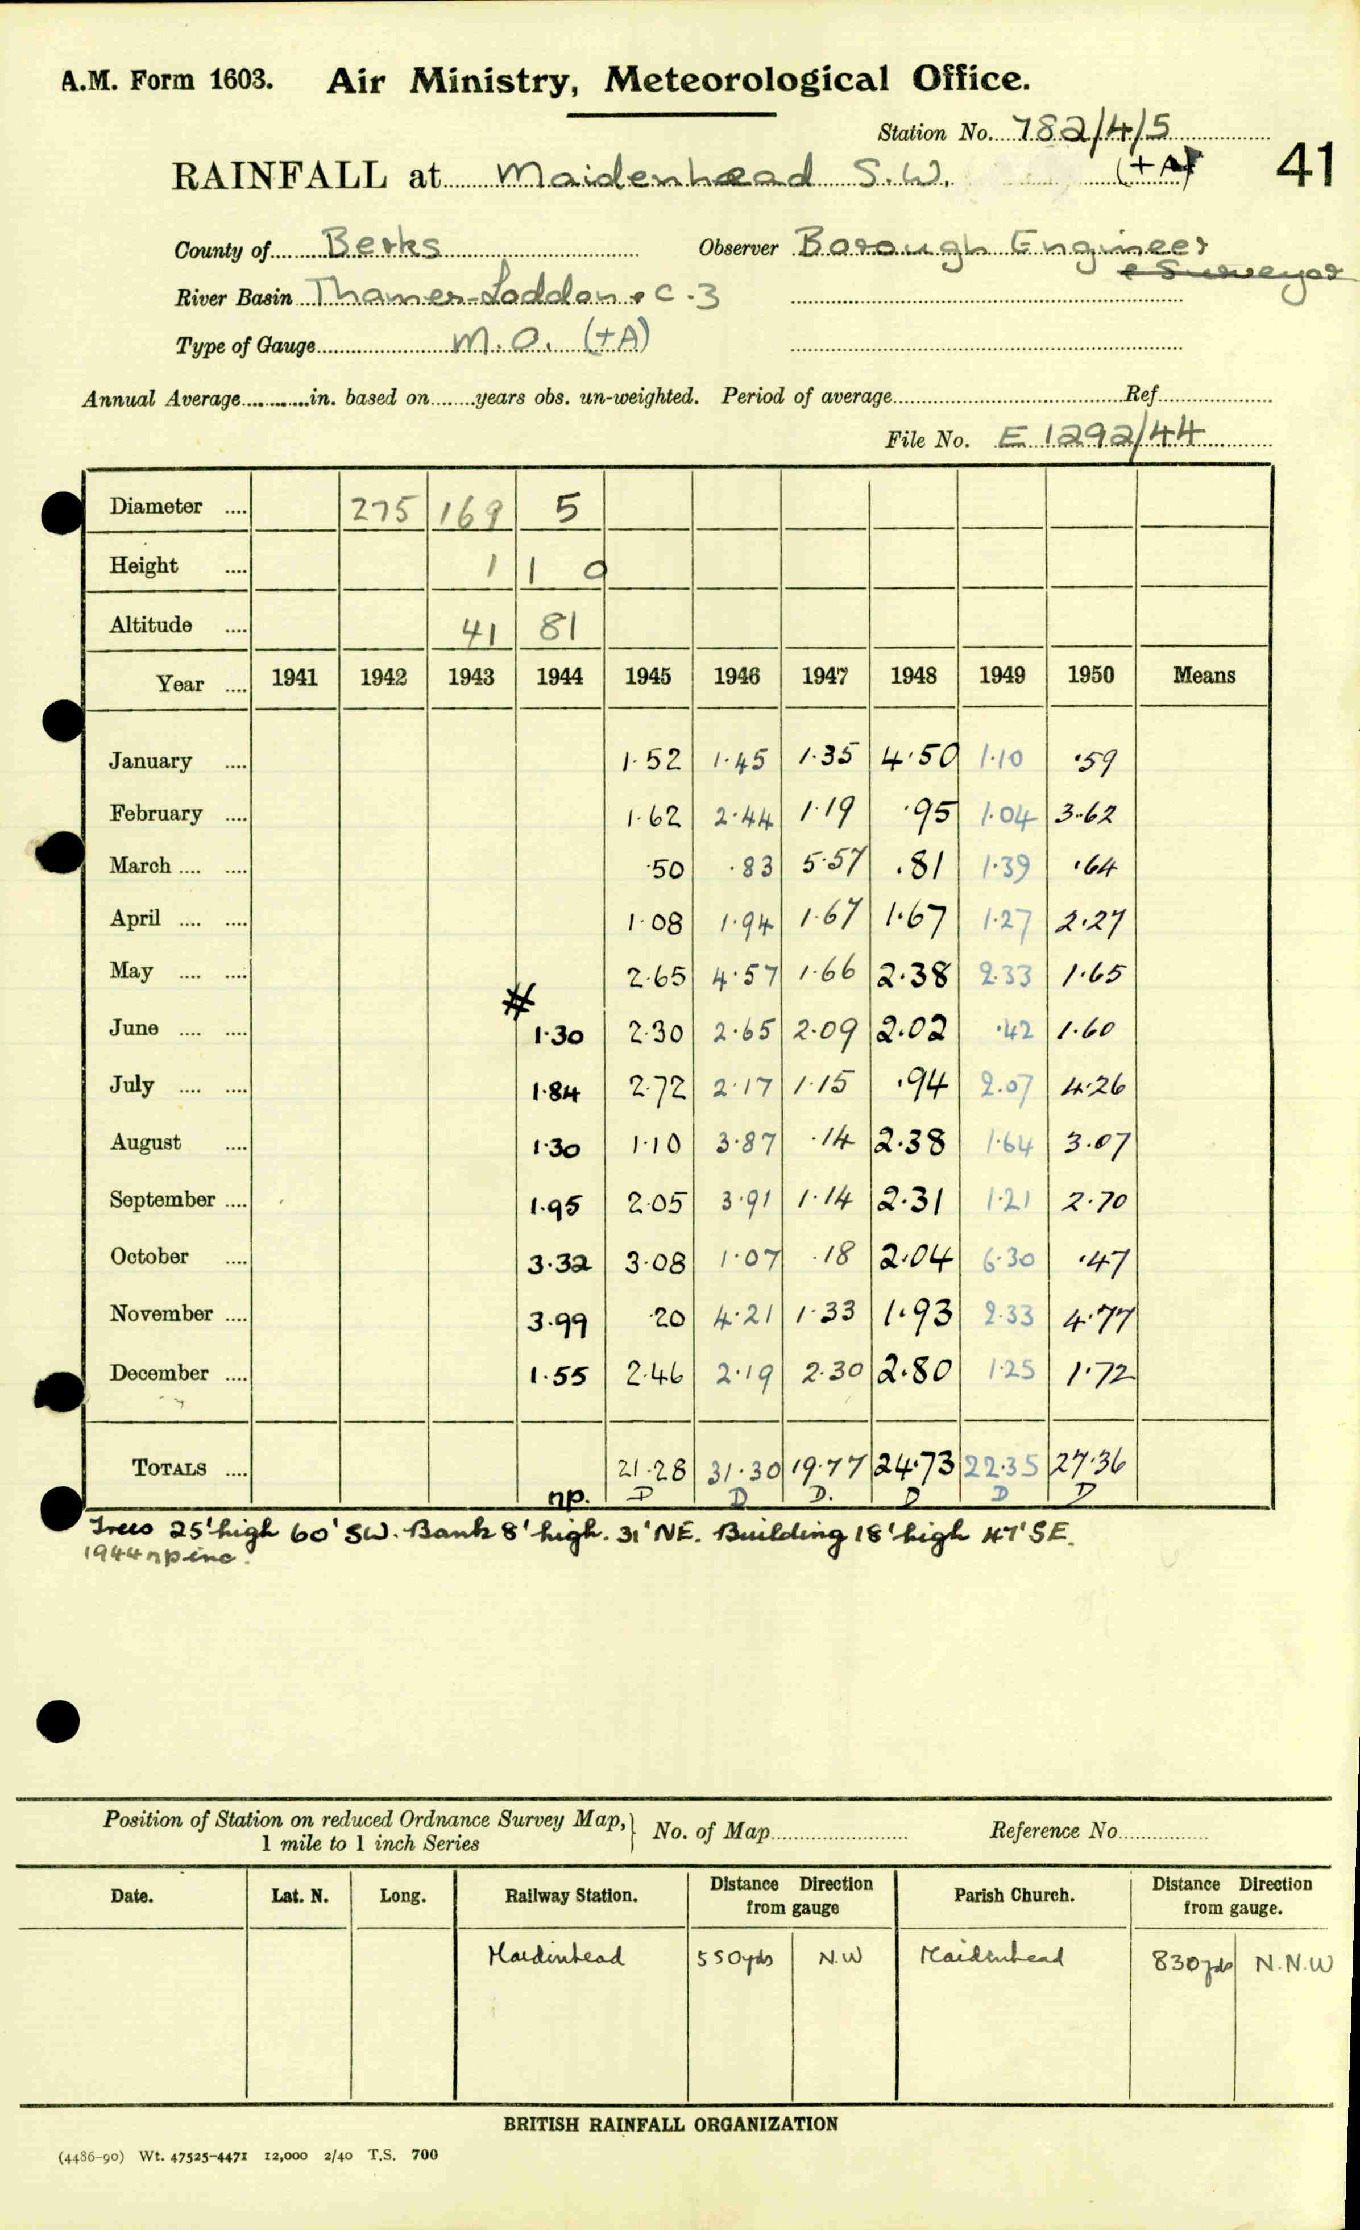 A.M. Form 1603. Air Ministry, Meteorological Office.
Station No. 782/4/5
RAINFALL at Maidenhead S.W. (+A) 41
County of Berks Observer Borough Engineer
& Surveyor
River Basin Thames-Loddon C.3
Type of Gauge M.O. (+A)
Annual Average in. based on years obs. un-weighted. Period of average Ref
File No. E 1292/44
Diameter 275 169 5
Height 1 1 0
Altitude 41 81
Year 1941 1942 1943 1944 1945 1946 1947 1948 1949 1950 Means
January 1.52 1.45 1.35 4.50 1.10 .59
February 1.62 2.44 1.19 .95 1.04 3.62
March .50 .83 5.57 .81 1.39 .64
April 1.08 1.94 1.67 1.67 1.27 2.27
May 2.65 4.57 1.66 2.38 2.33 1.65
#
June 1.30 2.30 2.65 2.09 2.02 .42 1.60
July 1.84 2.72 2.17 1.15 .94 2.07 4.26
August 1.30 1.10 3.87 .14 2.38 1.64 3.07
September 1.95 2.05 3.91 1.14 2.31 1.21 2.70
October 3.32 3.08 1.07 .18 2.04 6.30 .47
November 3.99 .20 4.21 1.33 1.93 2.33 4.77
December 1.55 2.46 2.19 2.30 2.80 1.25 1.72
TOTALS 21.28 31.30 19.77 24.73 22.35 27.36
np. D D D. D D D
Trees 25' high 60' SW. Bank 8' high. 31' NE. Building 18' high 47' SE.
1944 np inc.
Position of Station on reduced Ordnance Survey Map,
1 mile to 1 inch Series
No. of Map Reference No
Date. Lat. N. Long. Railway Station. Distance Direction from gauge Parish Church. Distance Direction from gauge.
Maidenhead 550yds N.W Maidenhead 830yds N.N.W
BRITISH RAINFALL ORGANIZATION
(4486-90) Wt. 47525-4471 12,000 2/40 T.S. 700